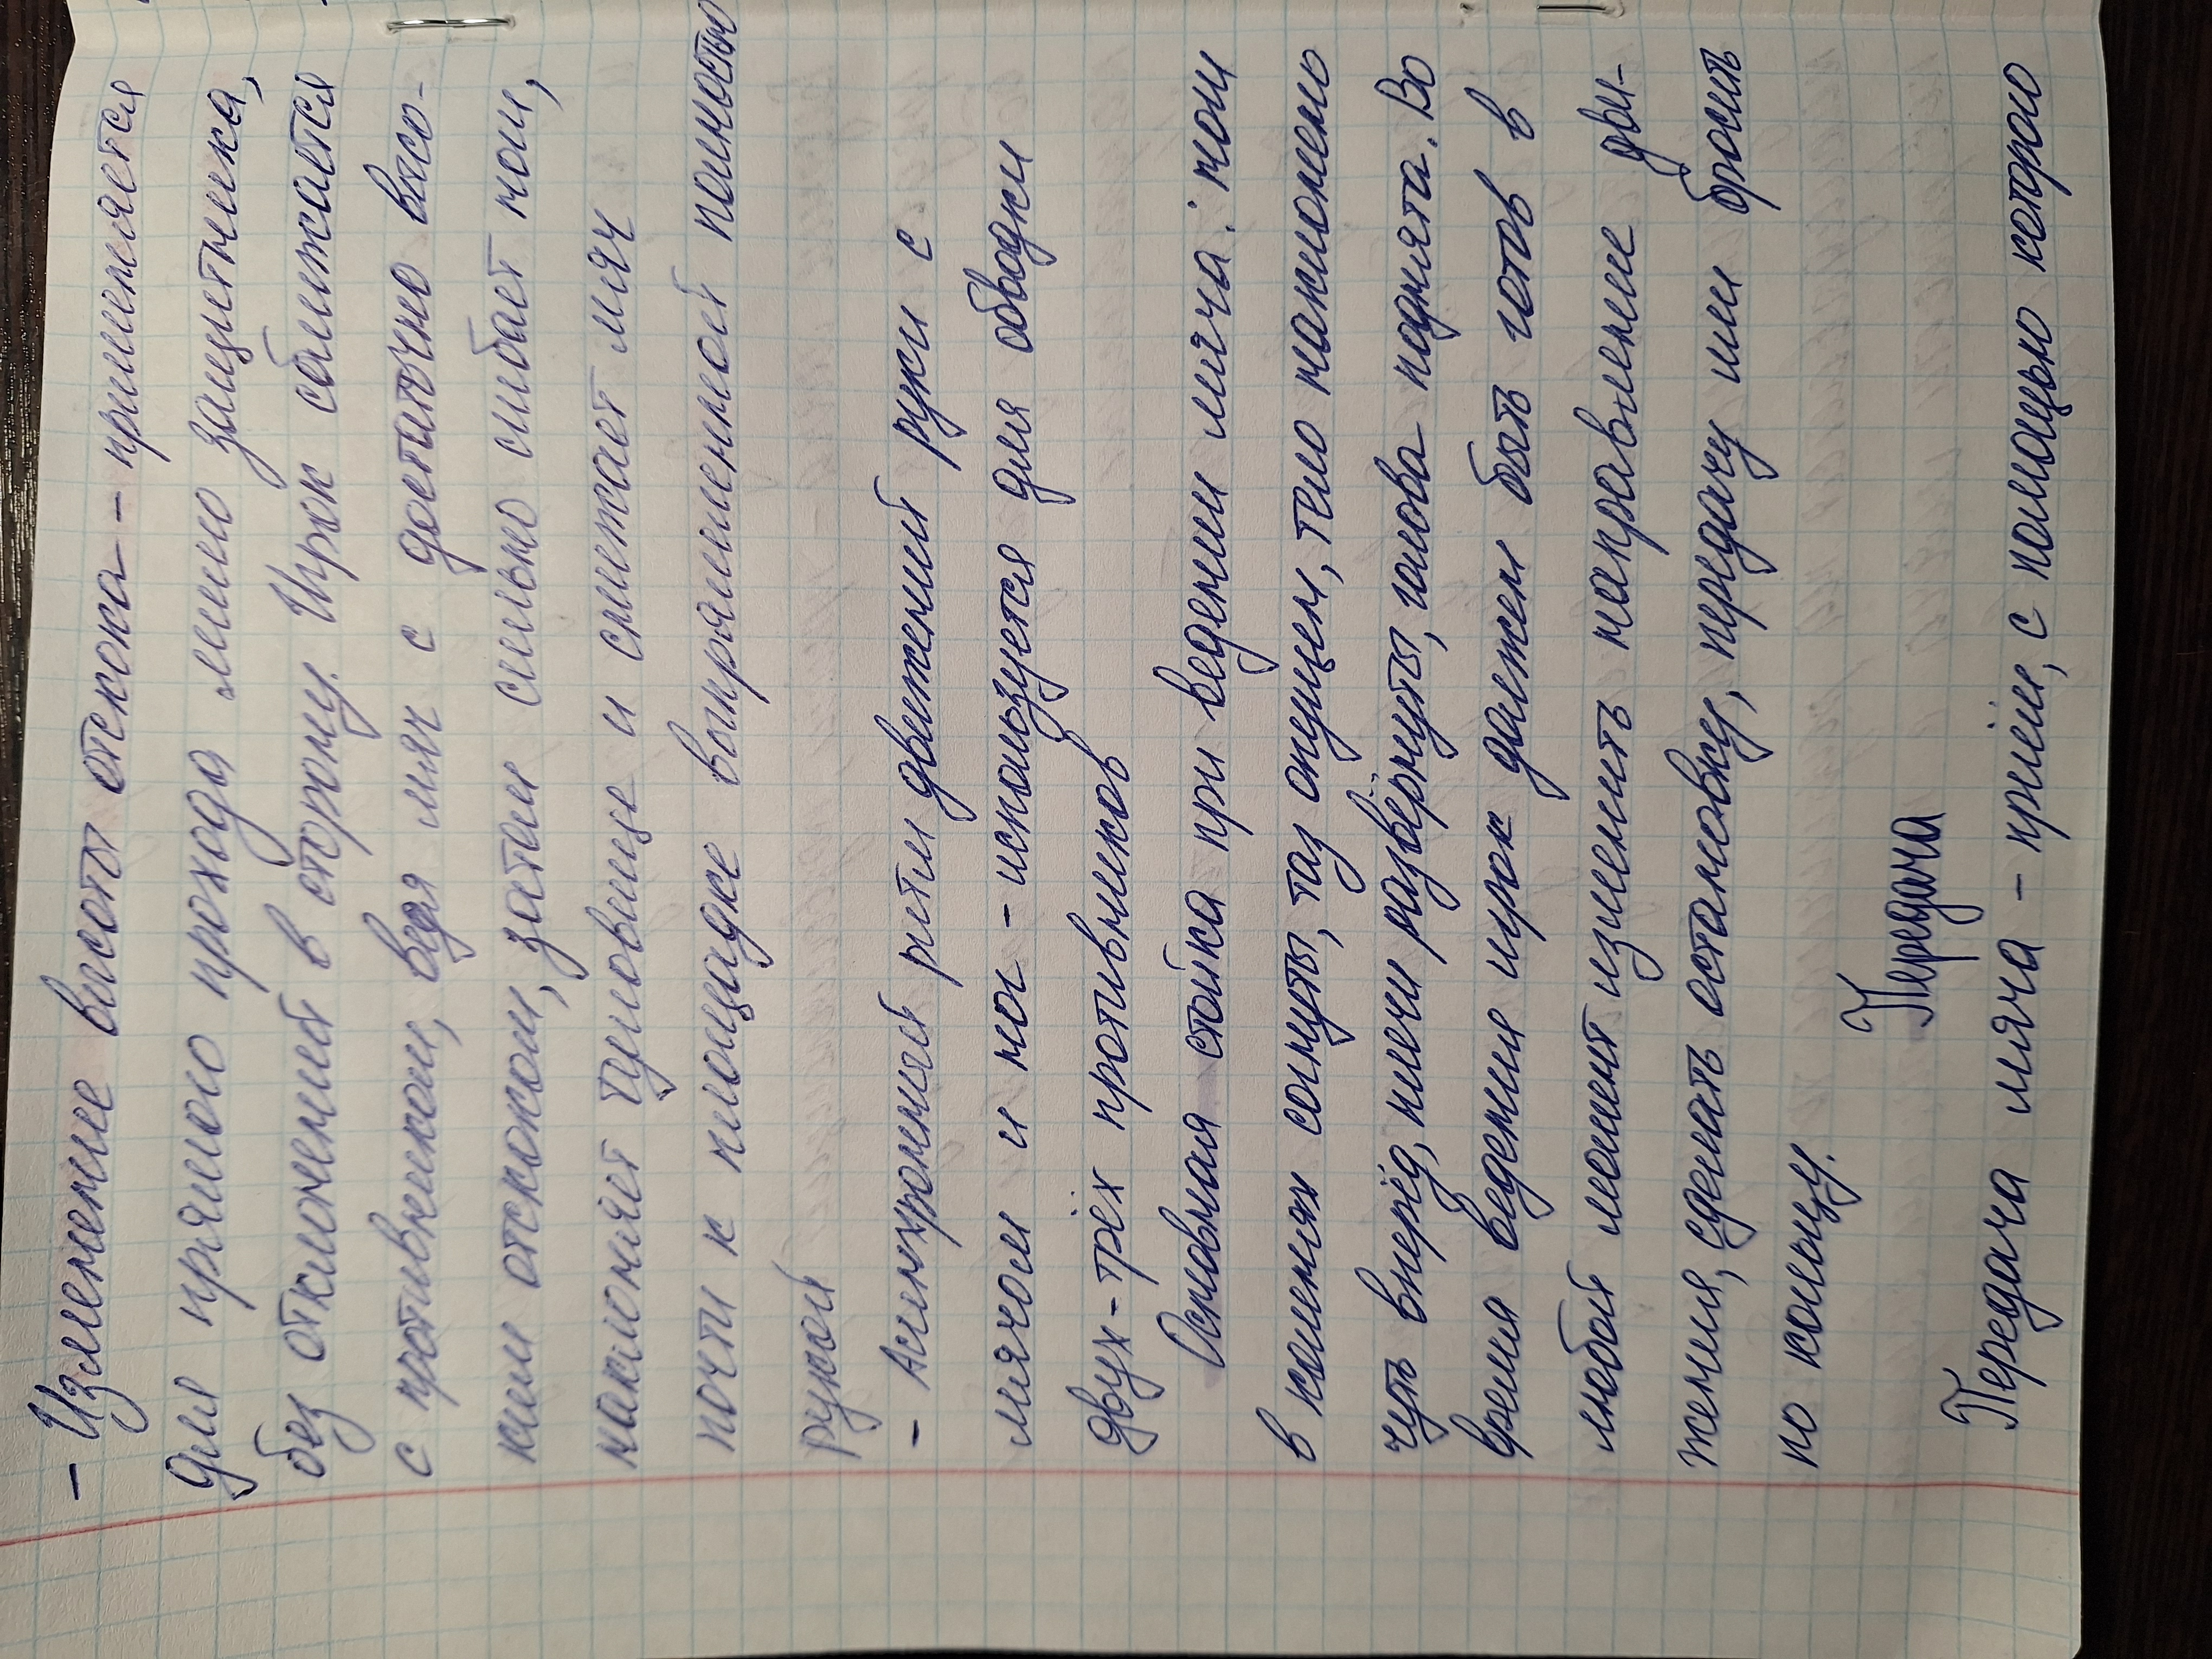 - Изменение высоты отскока - применяется
для прямого прохода мимо защитника,
без отклонений в сторону. Игрок сближается
с противником, ведя мяч с достаточно высо-
ким отскоком, затем сильно сгибает ноги,
наклоняет туловище и снижает мяч
почти к площадке выпрямленной полностью
рукой
- Асинхронный ритм движений руки с
мячом и ног - используется для обводки
двух-трёх противников
Основная стойка при ведении мяча: ноги
в коленях согнуты, таз опущен, тело наклонено
чуть вперёд, плечи развёрнуты, голова поднята. Во
время ведения игрок должен быть готов в
любой момент изменить направление дви-
жения, сделать остановку, передачу или бросить
по кольцу.
Передача
Передача мяча - приём, с помощью которого